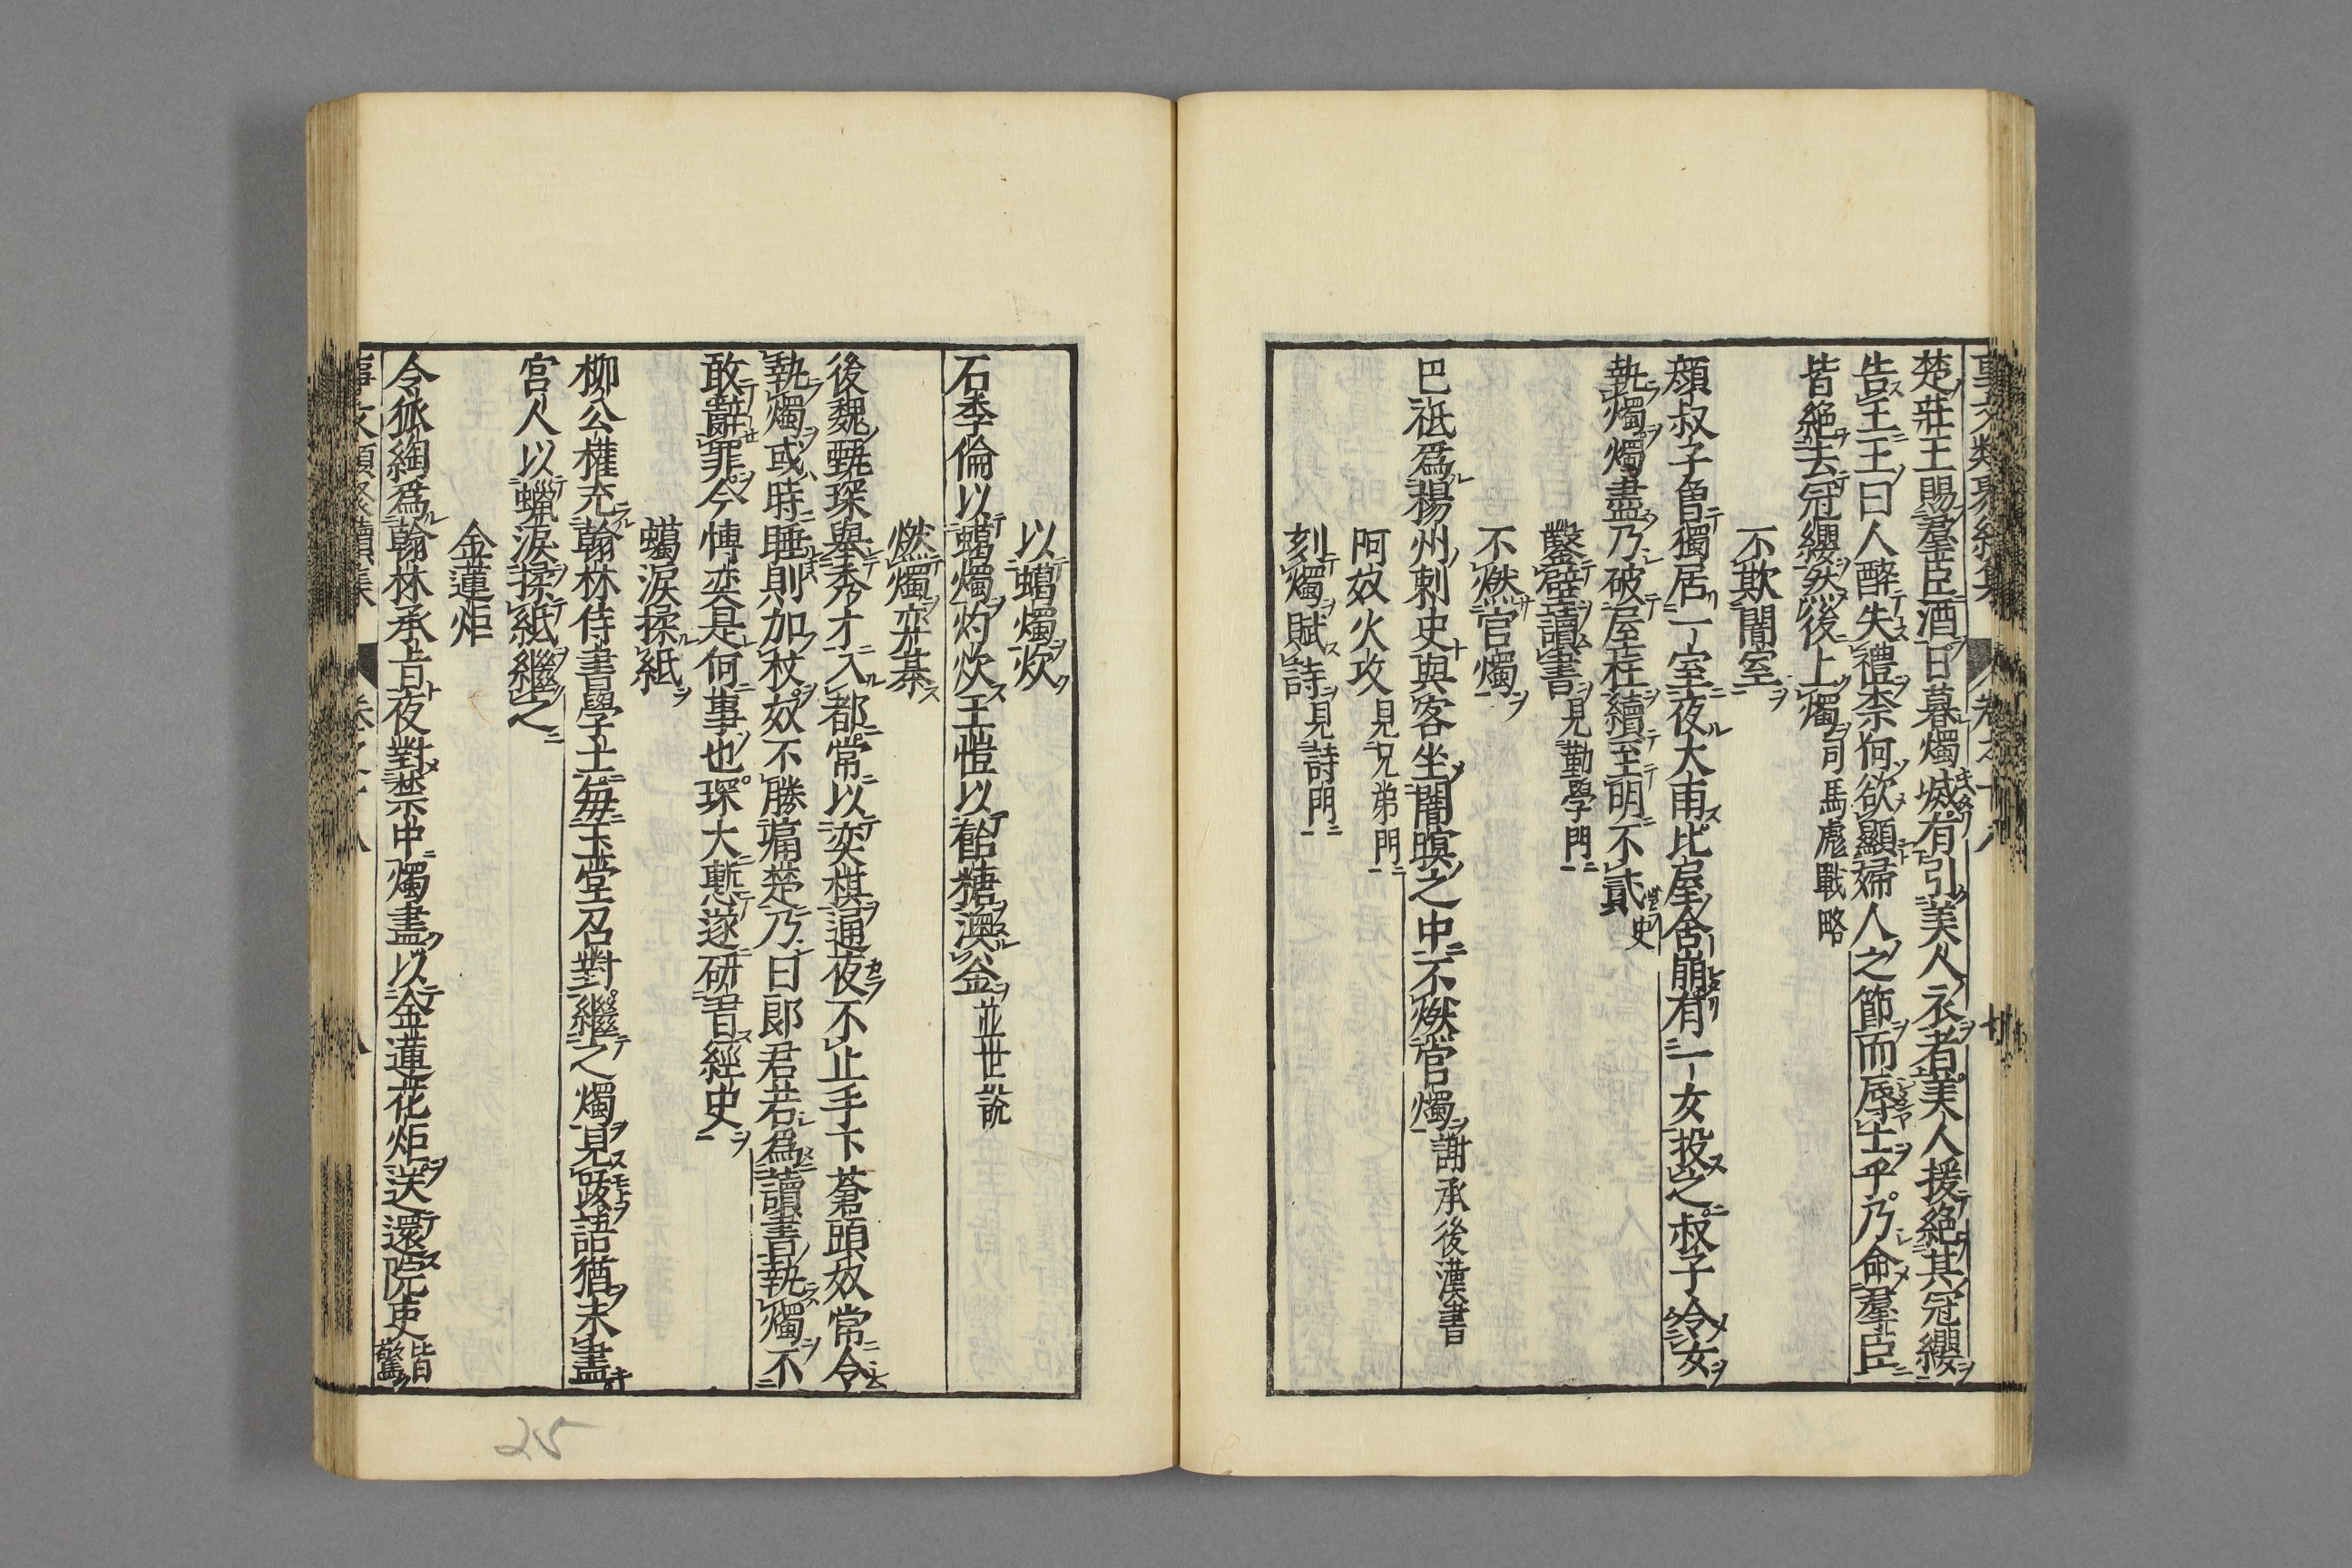 楚莊王賜羣臣酒日暮燭㓕有引美人衣者美人援絶其冠纓
告王王曰人醉失禮柰何欲顯婦人之節而辱士乎乃命羣臣
皆絶去冠纓然後上燭司馬彪戰略
不欺闇室
顔叔子魯獨居一室夜大雨比屋舍崩有一女投之叔子令女
執燭燭盡乃破屋椽續至明不貳史
鑿壁讀書見勤學門
不燃官燭
巴祗爲楊州刺史與客坐闇瞑之中不燃官燭謝承後漢書
阿奴火攻見兄弟門
刻燭賦詩見詩門
以蠟燭炊
石季倫以蠟燭灼炊王愷以䬧糖澳釜並世說
燃燭奕棊
後魏甄琛舉秀才入都常以奕棋通夜不止手下蒼頭奴常令
執燭或時睡則加杖奴不勝痛楚乃曰郎君若爲讀書執燭不
敢辭罪今愽奕是何事也琛大慙遂研習經史
蠟淚揉紙
柳公權充翰林侍書學士每玉堂召對繼之燭見跋語猶未盡
宮人以蠟淚揉紙繼之
金蓮炬
令狐綯爲翰林承旨夜對禁中燭盡以金蓮花炬送還院吏皆驚
25